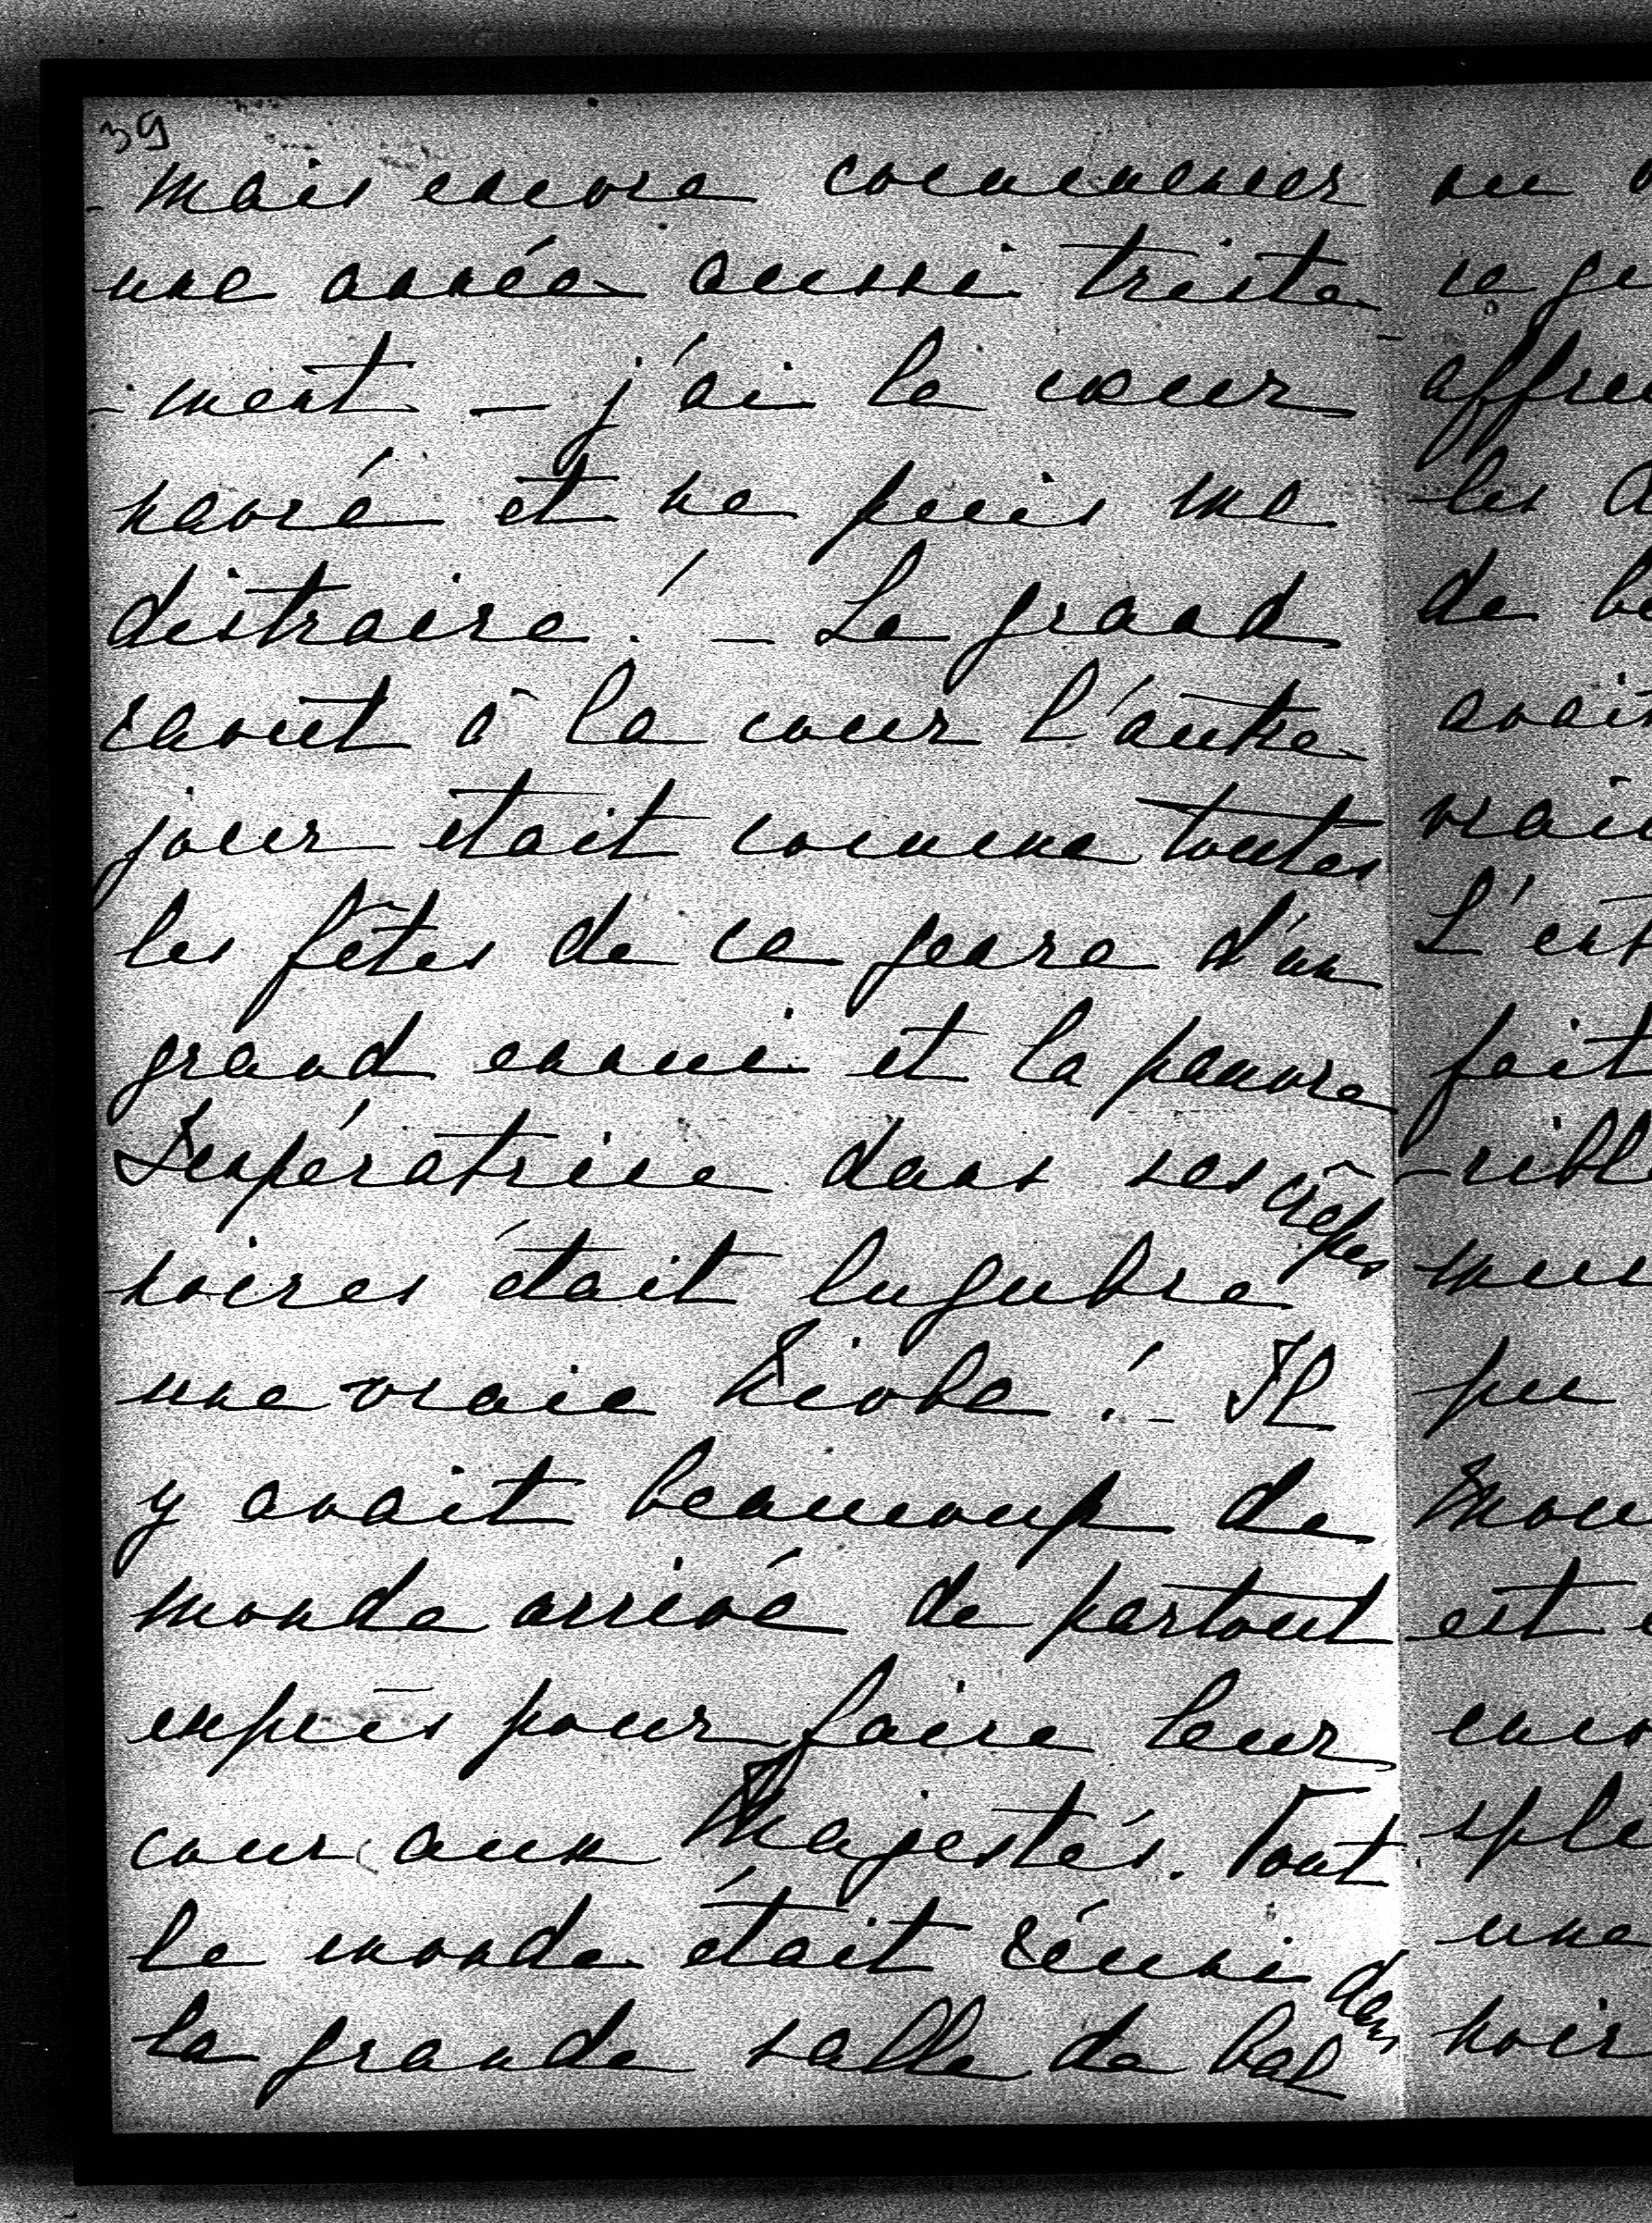 39
- mais encore commencer
une année aussi triste-
- ment - j'ai le cœur
navré et ne puis me
distraire! - Le grand
raout à la cour l'autre
jour était comme toutes
les fêtes de ce genre d'un
grand ennui et la pauvre
Impératrice dans ses crêpes
noires était lugubre
une vraie Niobe! - Il
y avait beaucoup de
monde arrivé de partout
exprès pour faire leur
cour aux Majestés. Tout
le monde était réuni dans
la grande salle de bal